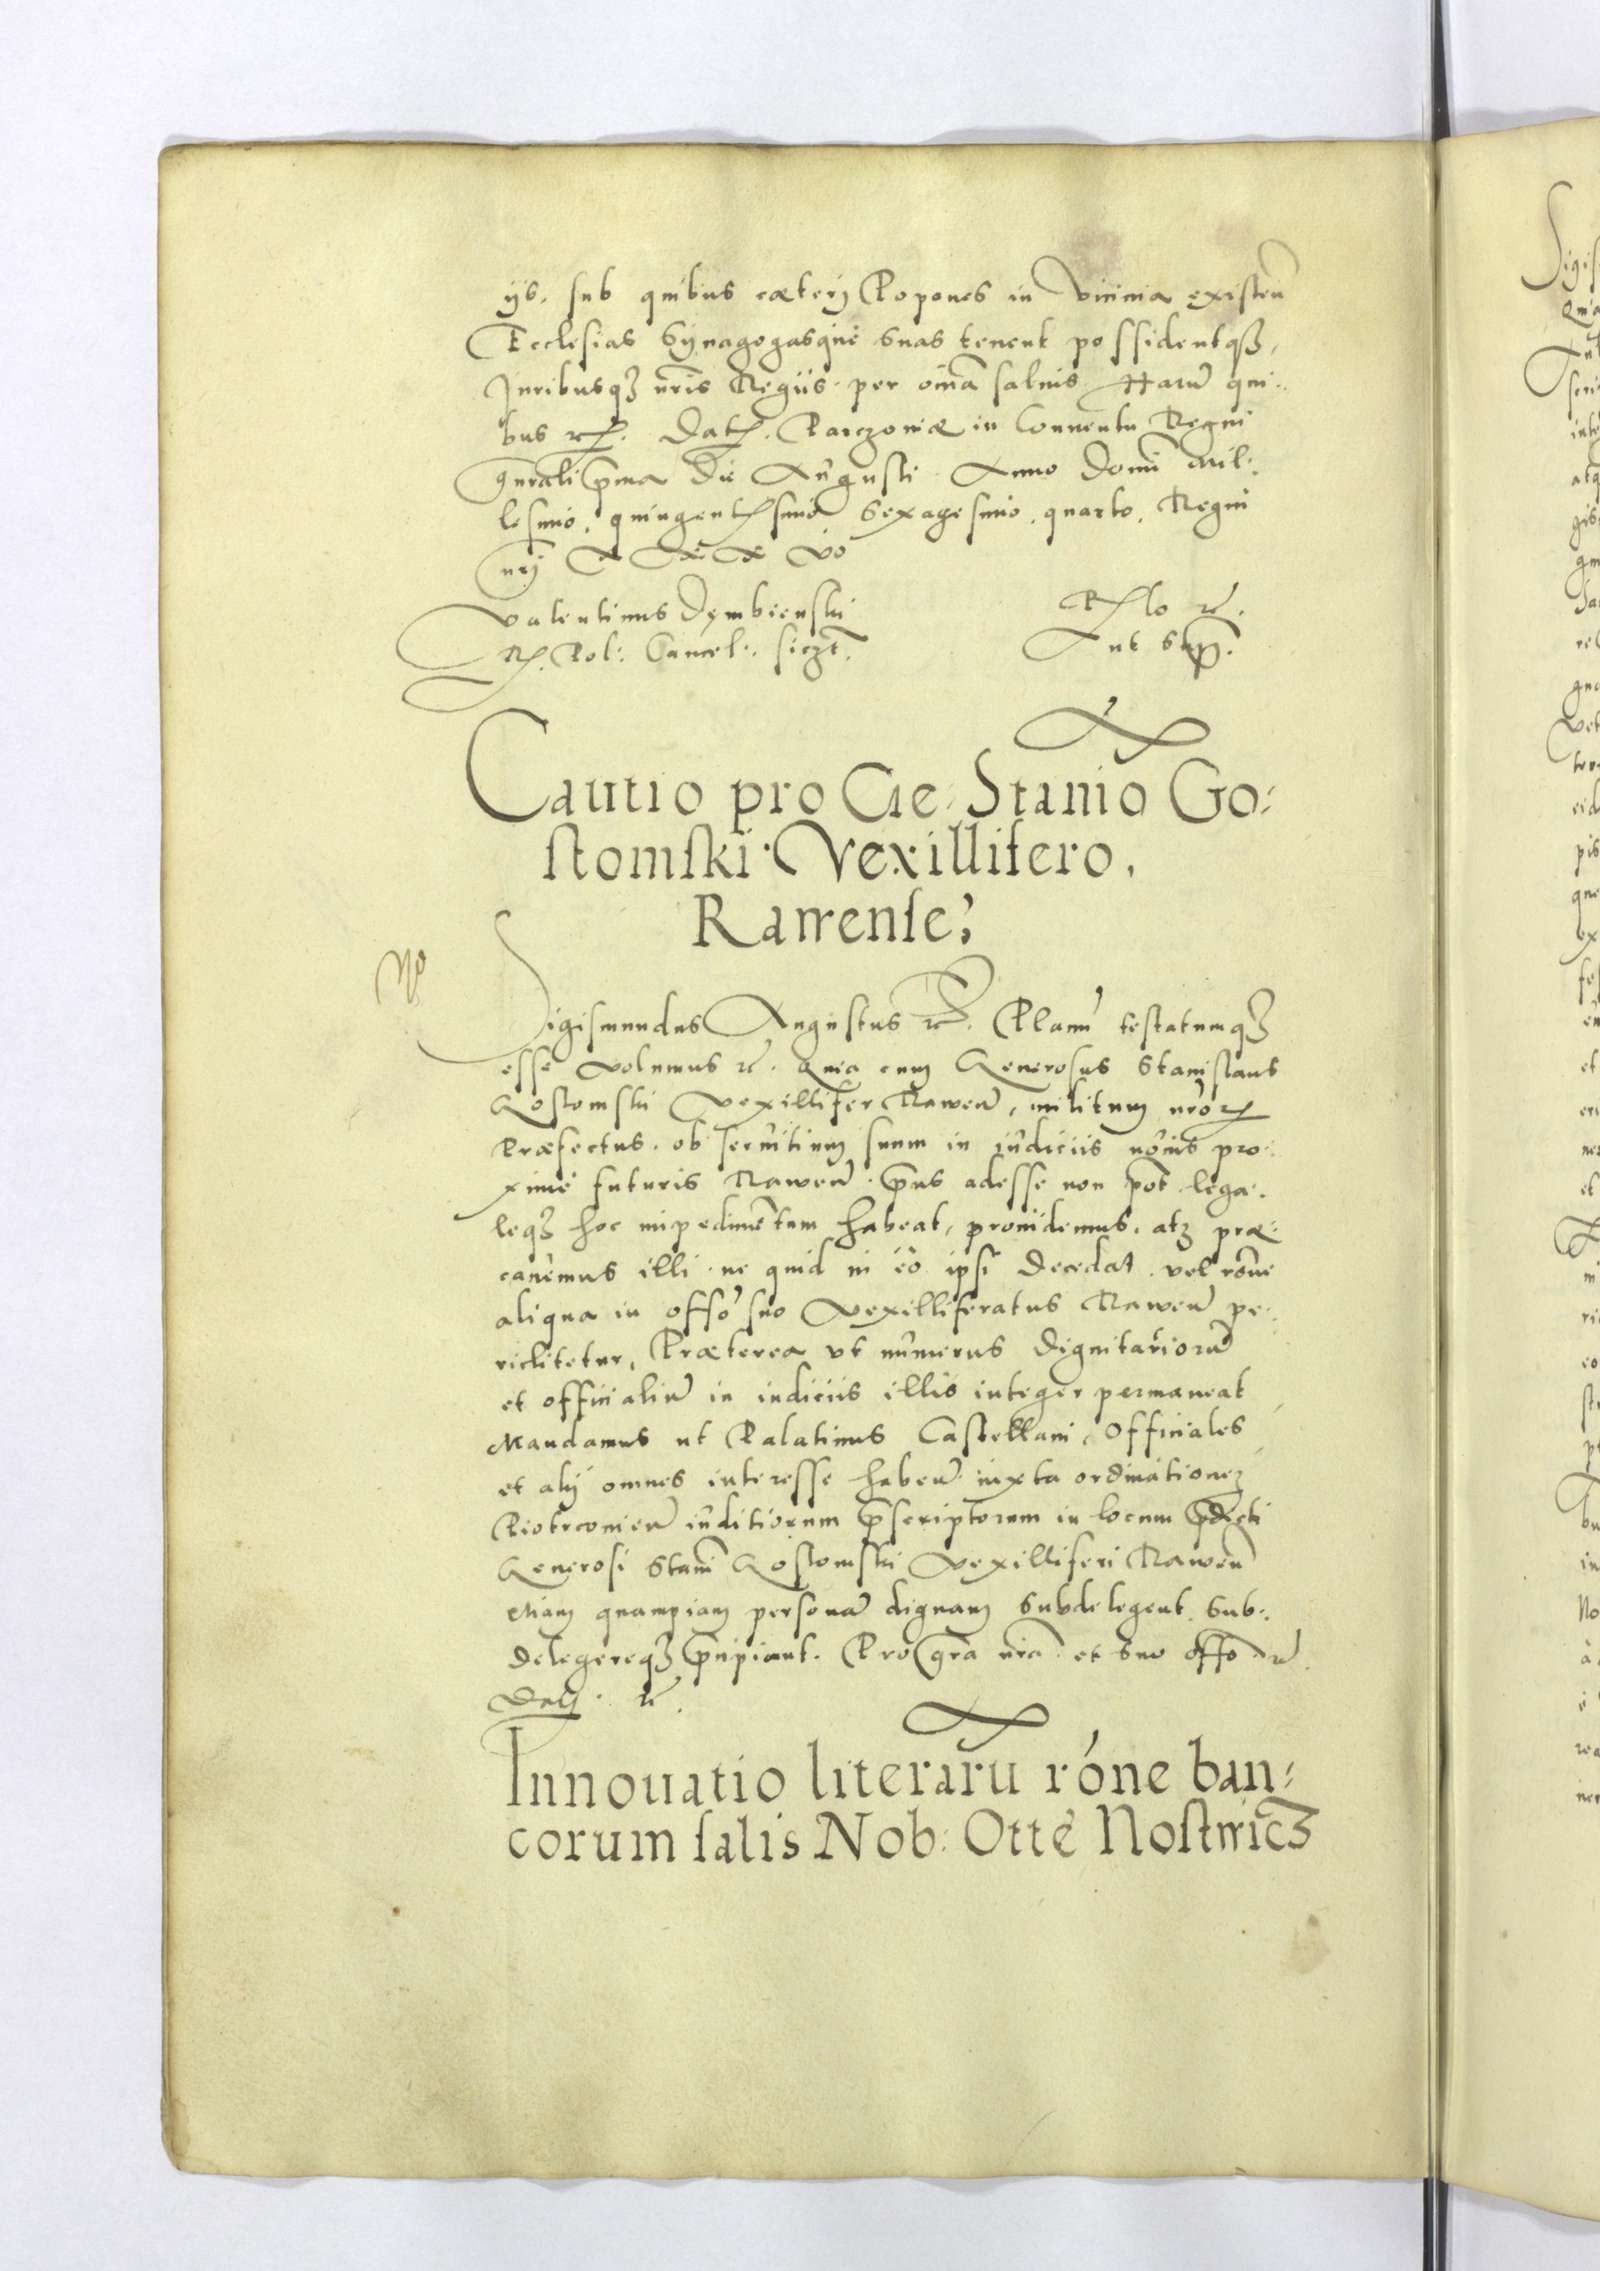 ijs. sub quibus cæterj Popones in vicinia existen̄
Ecclesias Synagogasque suas tenent possidentqȝ,
Juribusqȝ nr̄is Regiis per om̄ia saluis Harū qui-
bus etc. Dat. Parczouiæ in Conuentu Regni
gn̄rali pr̄ima die Augusti Anno Domī Mil-
lesimo, quingentesimo Sexagesimo, quarto, Regni
nr̄j XXX vo
Valentinus Dembienski
R. Pol: Cancel: ssczt.
Rlo etc.
ut sup.
Cautio pro Ge: Stanio Go-
stomski Vexillifero,
Rawense,
Sigismundus Augustus etc. Planū testatumqȝ
esse volumus etc. Quia cum Generosus Stanislaus
Gostomski Vexillifer Rawen̄, militum nr̄or
Præfectus, ob seruitium suum in iudiciis nouis pro-
xime futuris Rawen̄ pn̄s adesse non pōt lega-
leqȝ hoc impedimētum habeat, prouidemus, atqȝ præ-
cauemus illi ne quid in eo ipsi decedat vel rōne
aliqua in offō suo Vexilliferatus Rawen̄ pe-
riclitetur, Præterea vt numerus Dignitariorū
et officialiū in iudiciis illis integer permaneat
Mandamus ut Palatinus Castellani, Officiales
et alij omnes interesse haben̄ iuxta ordinationem
Piotrcouien̄ iuditiorum pr̄scriptorum in locum pr̄dicti
Generosi Stanī Gostomski Vexilliferi Rawen̄
etiam quampiam personā dignam subdelegent sub-
delegereqȝ pn̄cipiant. Pro gr̄a nr̄a et suo offō etc.
Dat. etc.
Innouatio literarū rōne ban-
corum salis Nob: Otte Nostwicȝ